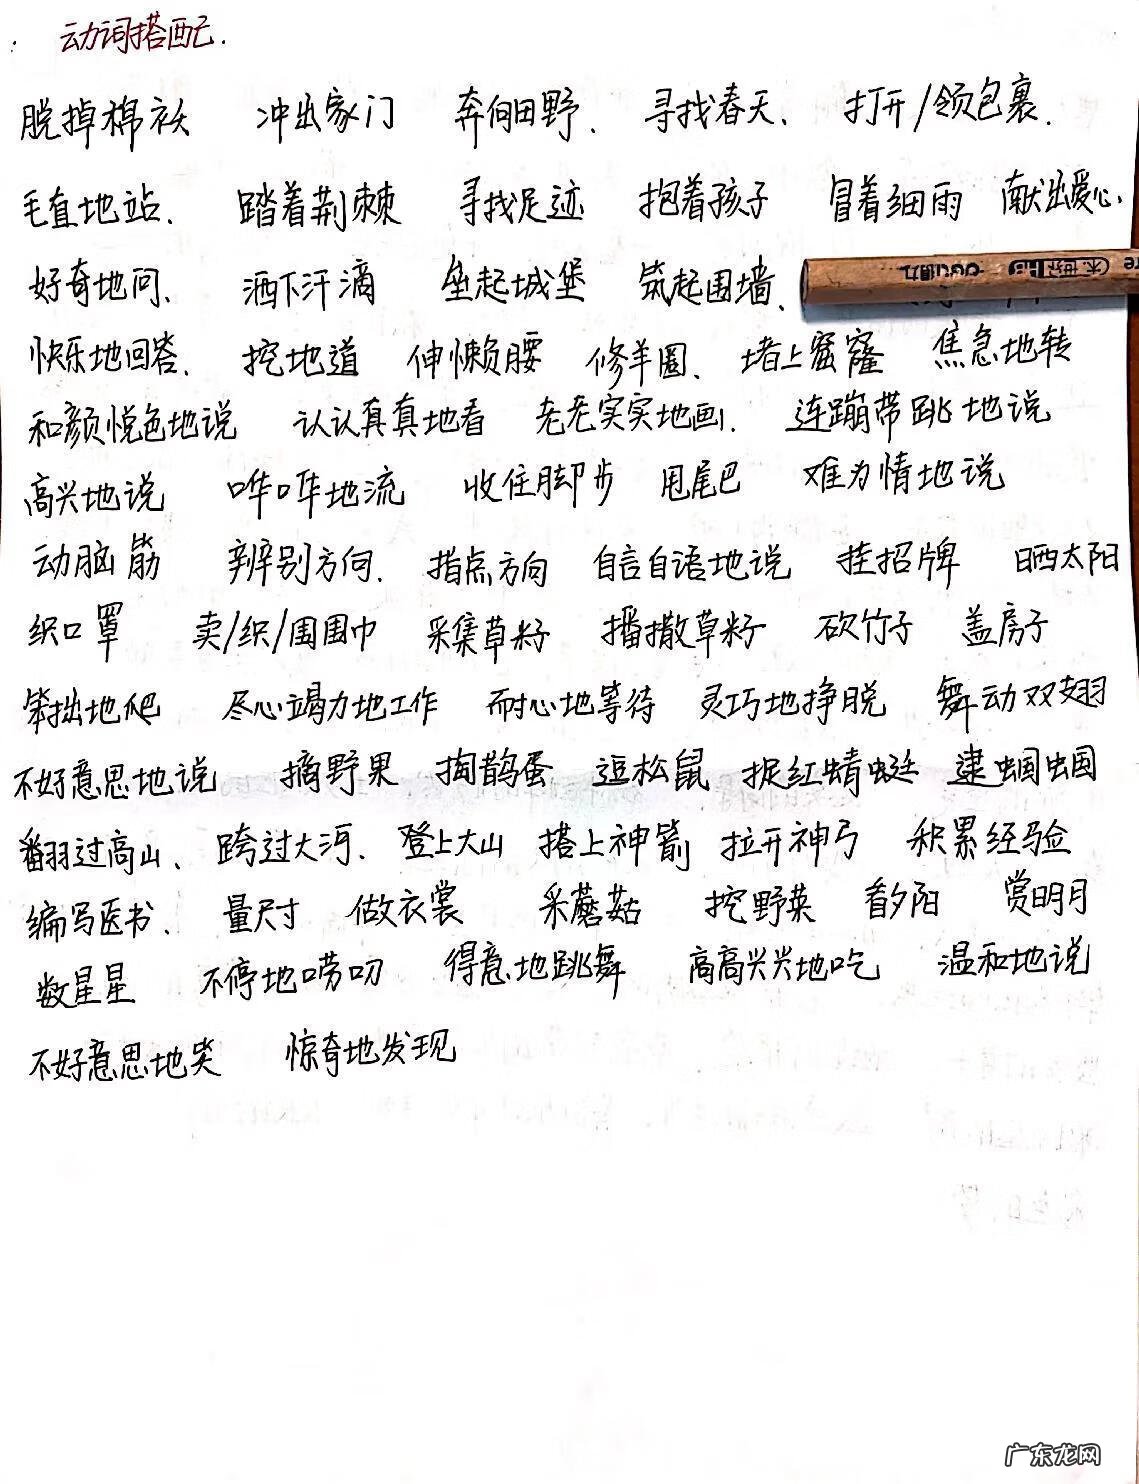 动词搭配.
脱掉棉袄 冲出家门 奔向田野、 寻找春天、 打开/领包裹.
笔直地站、 踏着荆棘 寻找足迹 抱着孩子 冒着细雨 献出爱心、
好奇地问、 洒下汗滴 垒起城堡 筑起围墙、
快乐地回答、 挖地道 伸懒腰 修羊圈、 堵上窟窿 焦急地转
和颜悦色地说 认认真真地看 老老实实地画. 连蹦带跳地说
高兴地说 哗哗地流 收住脚步 甩尾巴 难为情地说
动脑筋 辨别方向. 指点方向 自言自语地说 挂招牌 晒太阳
织口罩 卖/织/围围巾 采集草籽 播撒草籽 砍竹子 盖房子
笨拙地爬 尽心竭力地工作 耐心地等待 灵巧地挣脱 舞动双翅
不好意思地说 摘野果 掏鹊蛋 逗松鼠 捉红蜻蜓 逮蝈蝈
翻过高山、 跨过大河、 登上大山 搭上神箭 拉开神弓 积累经验
编写医书、 量尺寸 做衣裳 采蘑菇 挖野菜 看夕阳 赏明月
数星星 不停地唠叨 得意地跳舞 高高兴兴地吃 温和地说
不好意思地笑 惊奇地发现
广东龙网